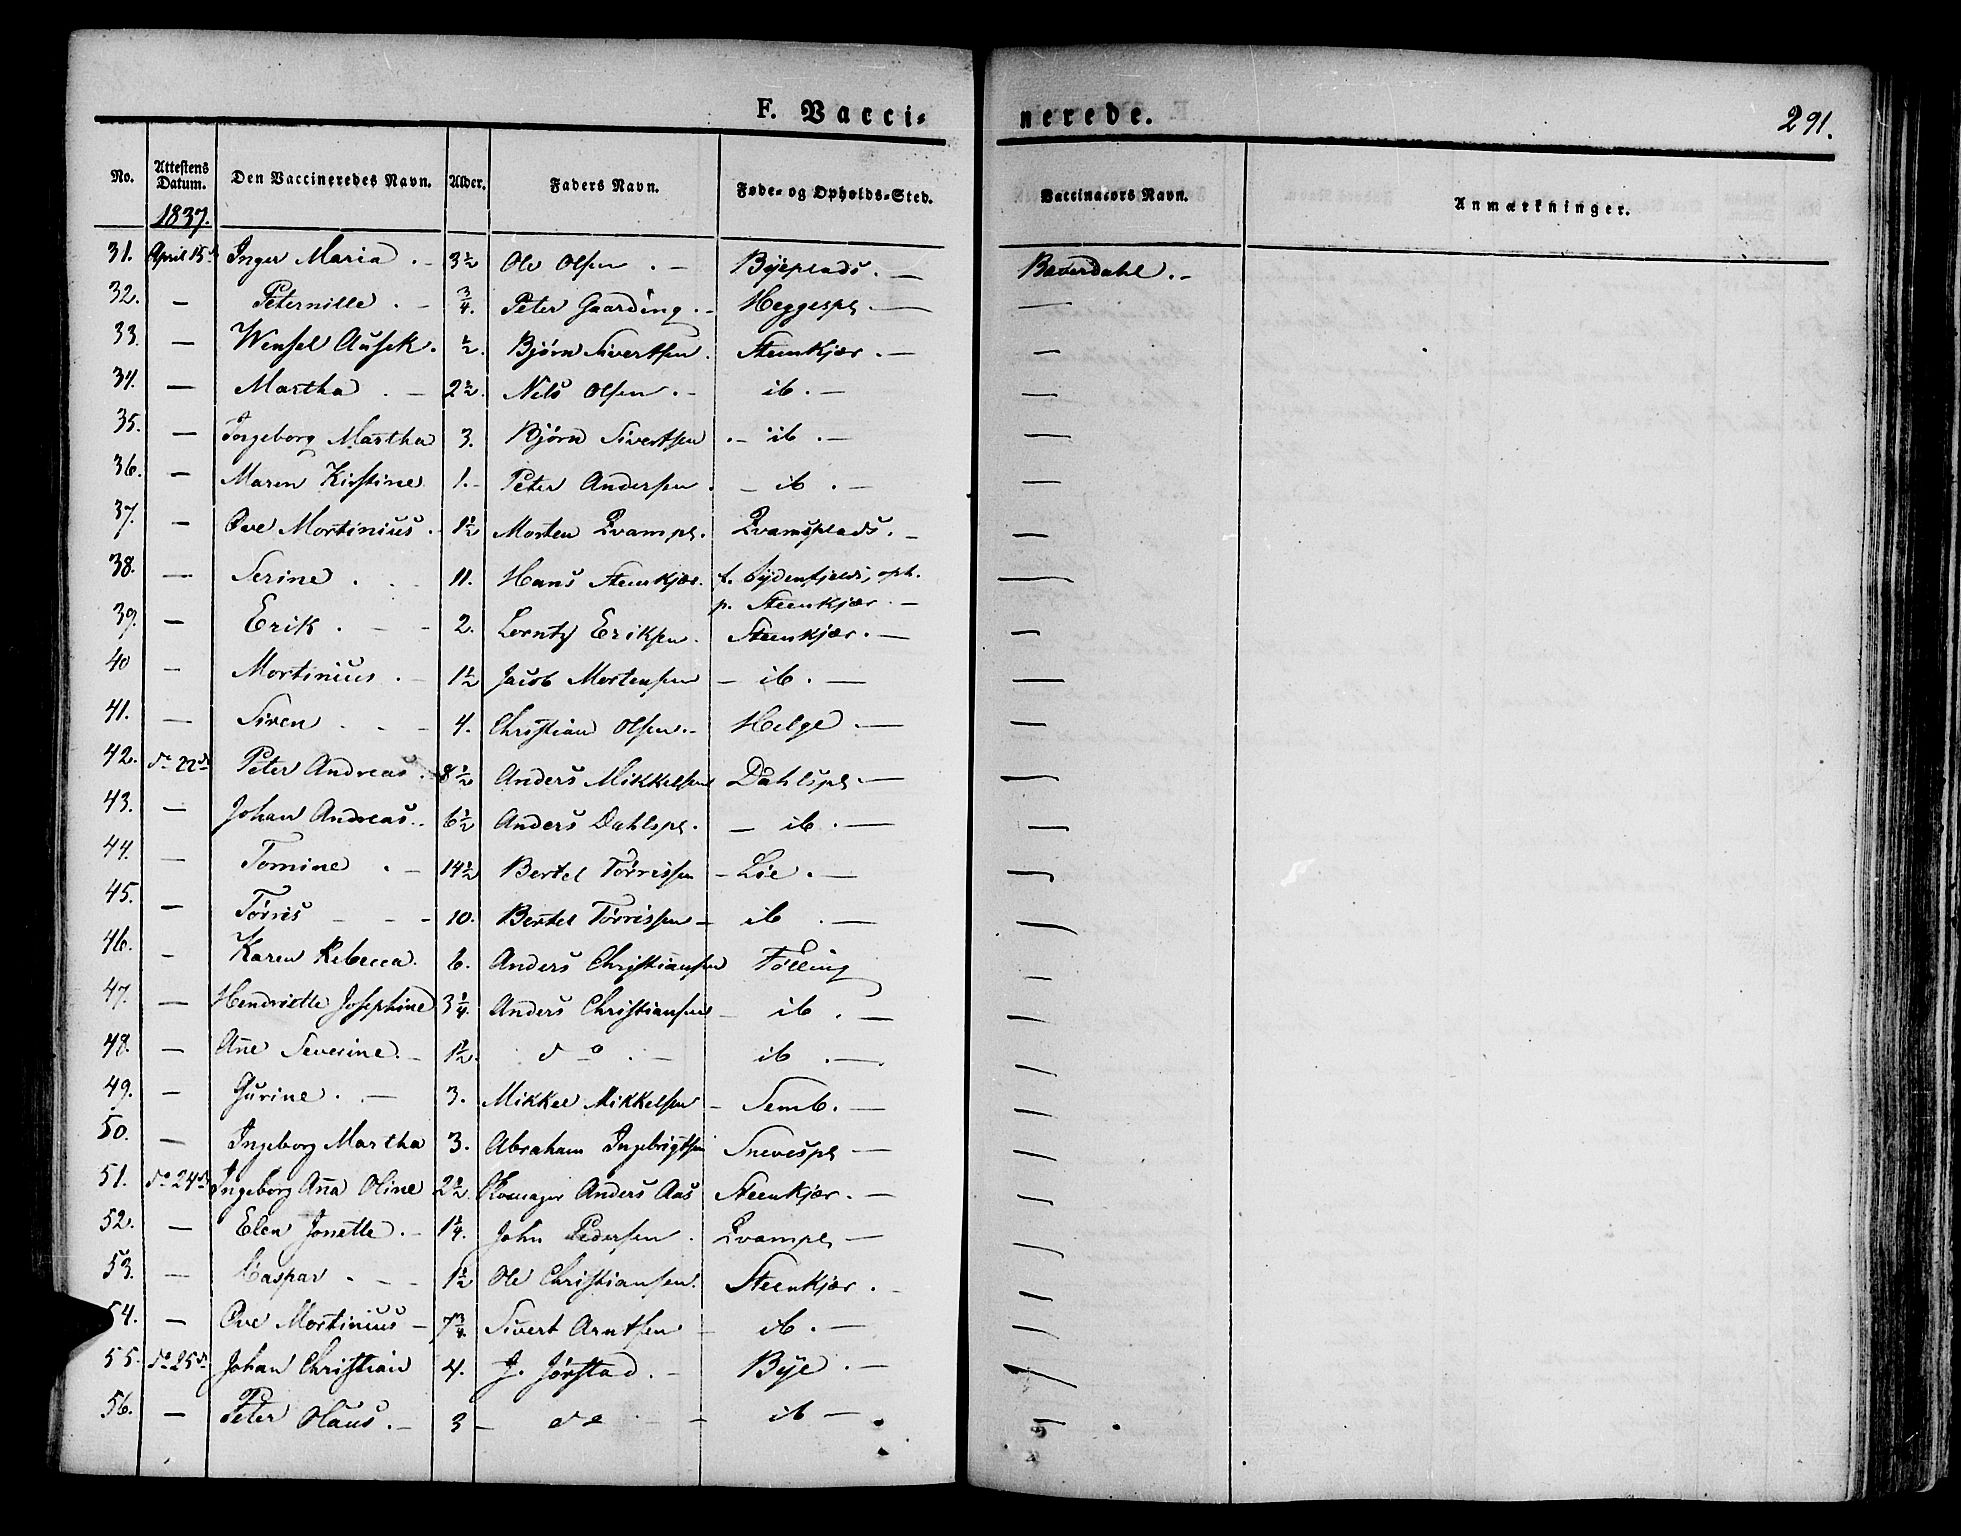 F. Vacci-
nerede.
291.
No. Attestens Datum. Den Vaccineredes Navn. Alder. Faders Navn. Føde- og Opholds-Sted. Vaccinators Navn. Anmærkninger.
1837.
31. April 15d Inger Maria . - 3½ Ole Olsen . - Byeplads . - Baverdahl . -
32. - Peternille . - ¾. Peter Gaarding . - Heggespl -  -
33. - Wensel Ausek . ½. Bjørn Sivertsen . Steenkjær . - -
34. - Martha . - 2½. Nils Olsen . - ib . - -
35. - Ingeborg Martha 3. Bjørn Sivertsen . - ib . - -
36. - Maren Kirstine 1. - Peter Andersen . - ib . - -
37. - Ove Mortinius . 1½ Morten Qvampl . Qvamsplads . - -
38. - Serine . . 11. Hans Steenkjær . f. Sydenfjelds, oph.
p. Steenkjær . - -
39. - Erik . - - 2. Lorntz Eriksen . Steenkjær . - -
40 - Mortinius . - 1½ Jacob Mortensen - ib . - -
41. - Siren . - - 4. Christian Olsen . - Helge . - -
42. do 22d Peter Andreas . 8½ Anders Mikkelsen Dahlspl - -
43. - Johan Andreas . . 6½ Anders Dahlspl . - ib . - -
44. - Tomine . - 14½ Bertel Tørrissen - Lie . - -
45. - Tørris - - - 10. Bertel Tørrissen - ib . - -
46. - Karen Rebecca . 6. Anders Christiansen Følling -
47. - Hendriette Josephine 3¼. Anders Christiansen - ib . - -
48. - Ane Severine . - 1½. do . - ib . - -
49. - Gurine . - 3. Mikkel Mikkelsen - Semb . - -
50. - Ingeborg Martha 3. Abraham Ingebrigtsen Snevespl - -
51. do 24d Ingeborg Anna Oline 2½ Anders Aas Steenkjær . - -
52. - Elen Jonette . - 1¼. John Pedersen . Qvampl - -
53. - Caspar . - - 1½ Ole Christiansen . Steenkjær . - -
54. - Ove Mortinius - 7¾. Sivert Arntsen - ib . - -
55. do 25d Johan Christian 4. J. Jørstad . - Bye . - -
56. - Peter Olaus . - 3 - do - - ib - -